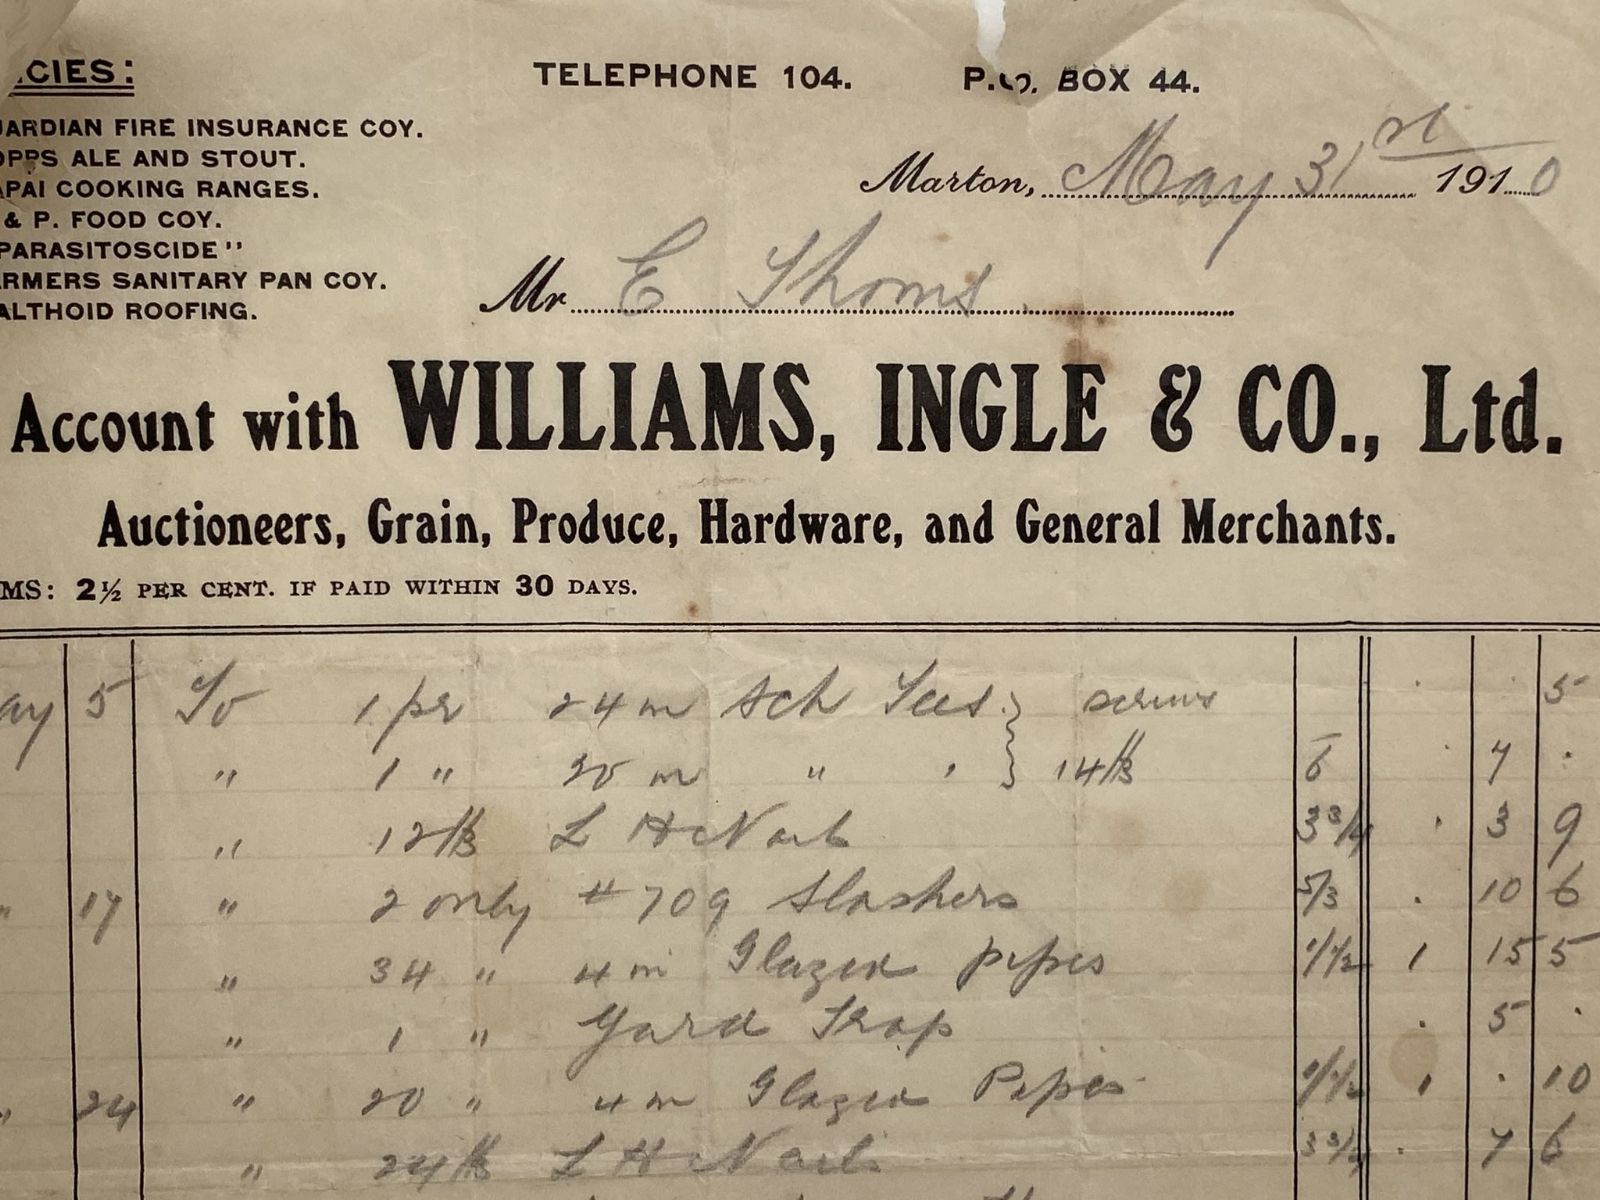 CIES:
TELEPHONE 104. P.O. BOX 44.
ARDIAN FIRE INSURANCE COY.
OPPS ALE AND STOUT.
APAI COOKING RANGES.
& P. FOOD COY.
PARASITOSCIDE"
ARMERS SANITARY PAN COY.
ALTHOID ROOFING.
Marton, May 31st 1910
Mr E Thoms
Account with WILLIAMS, INGLE & CO., Ltd.
Auctioneers, Grain, Produce, Hardware, and General Merchants.
MS: 2½ PER CENT. IF PAID WITHIN 30 DAYS.
ay 5 To 1 pr 24 in Sch Tees } screws 5
" 1 " 20 in " } 14 lb 6 7 .
" 12 lb L H Nails 3 3/4 . 3 9
" 17 " 2 only # 709 Slashers 5/3 . 10 6
" 34 " 4 in Glazed pipes 1/½ 1 15 5
" 1 " Yard Trap . 5 .
" 24 " 20 " 4 in Glazed Pipes 1/½ 1 . 10
" 24 lb L H Nails 3 3/4 . 7 6